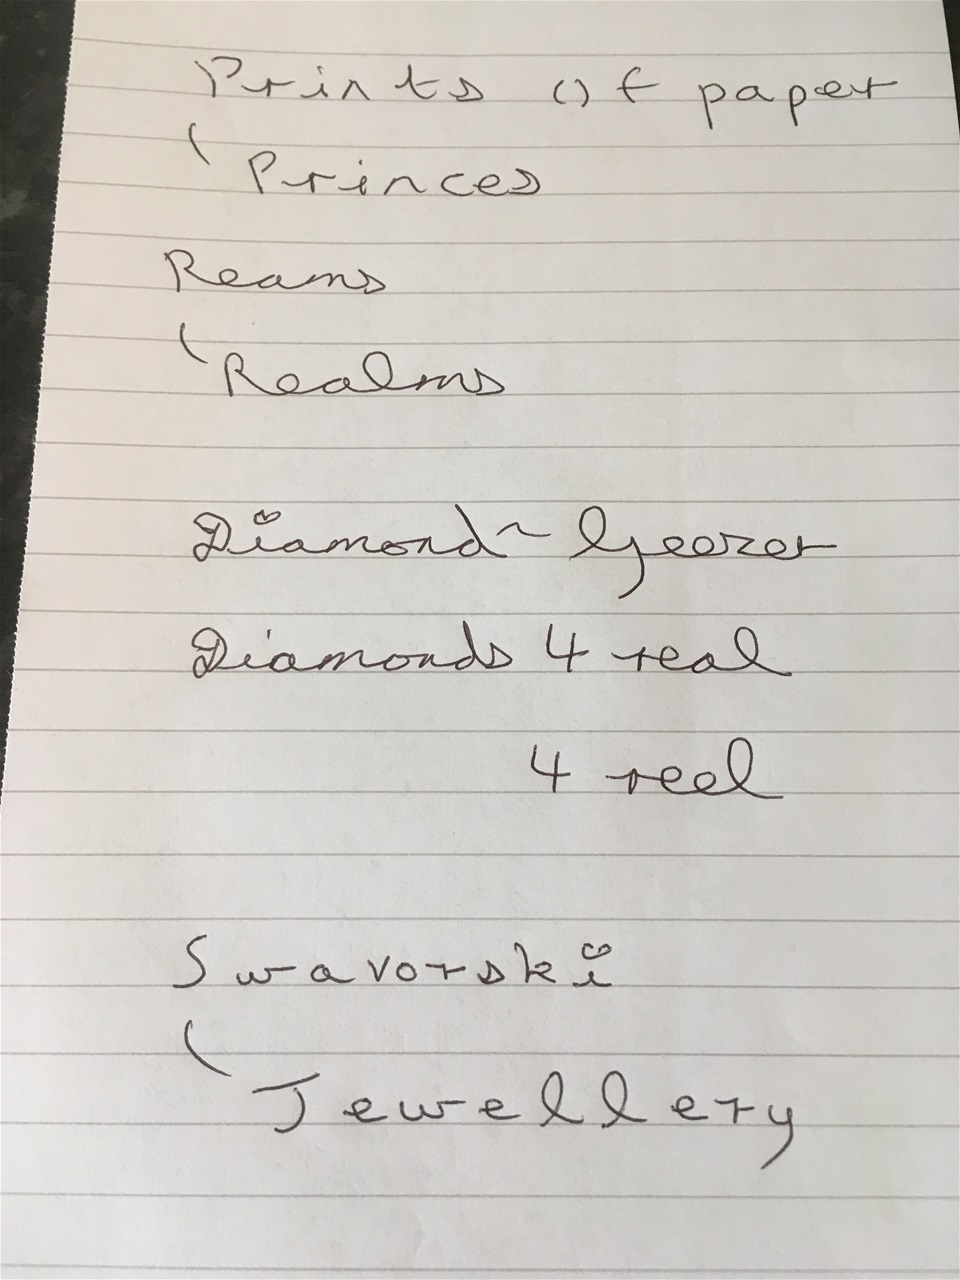 Prints of paper
Princes
Reams
Realms
Diamond ~ Geezer
Diamonds 4 real
4 reel
Swavorski
Jewellery